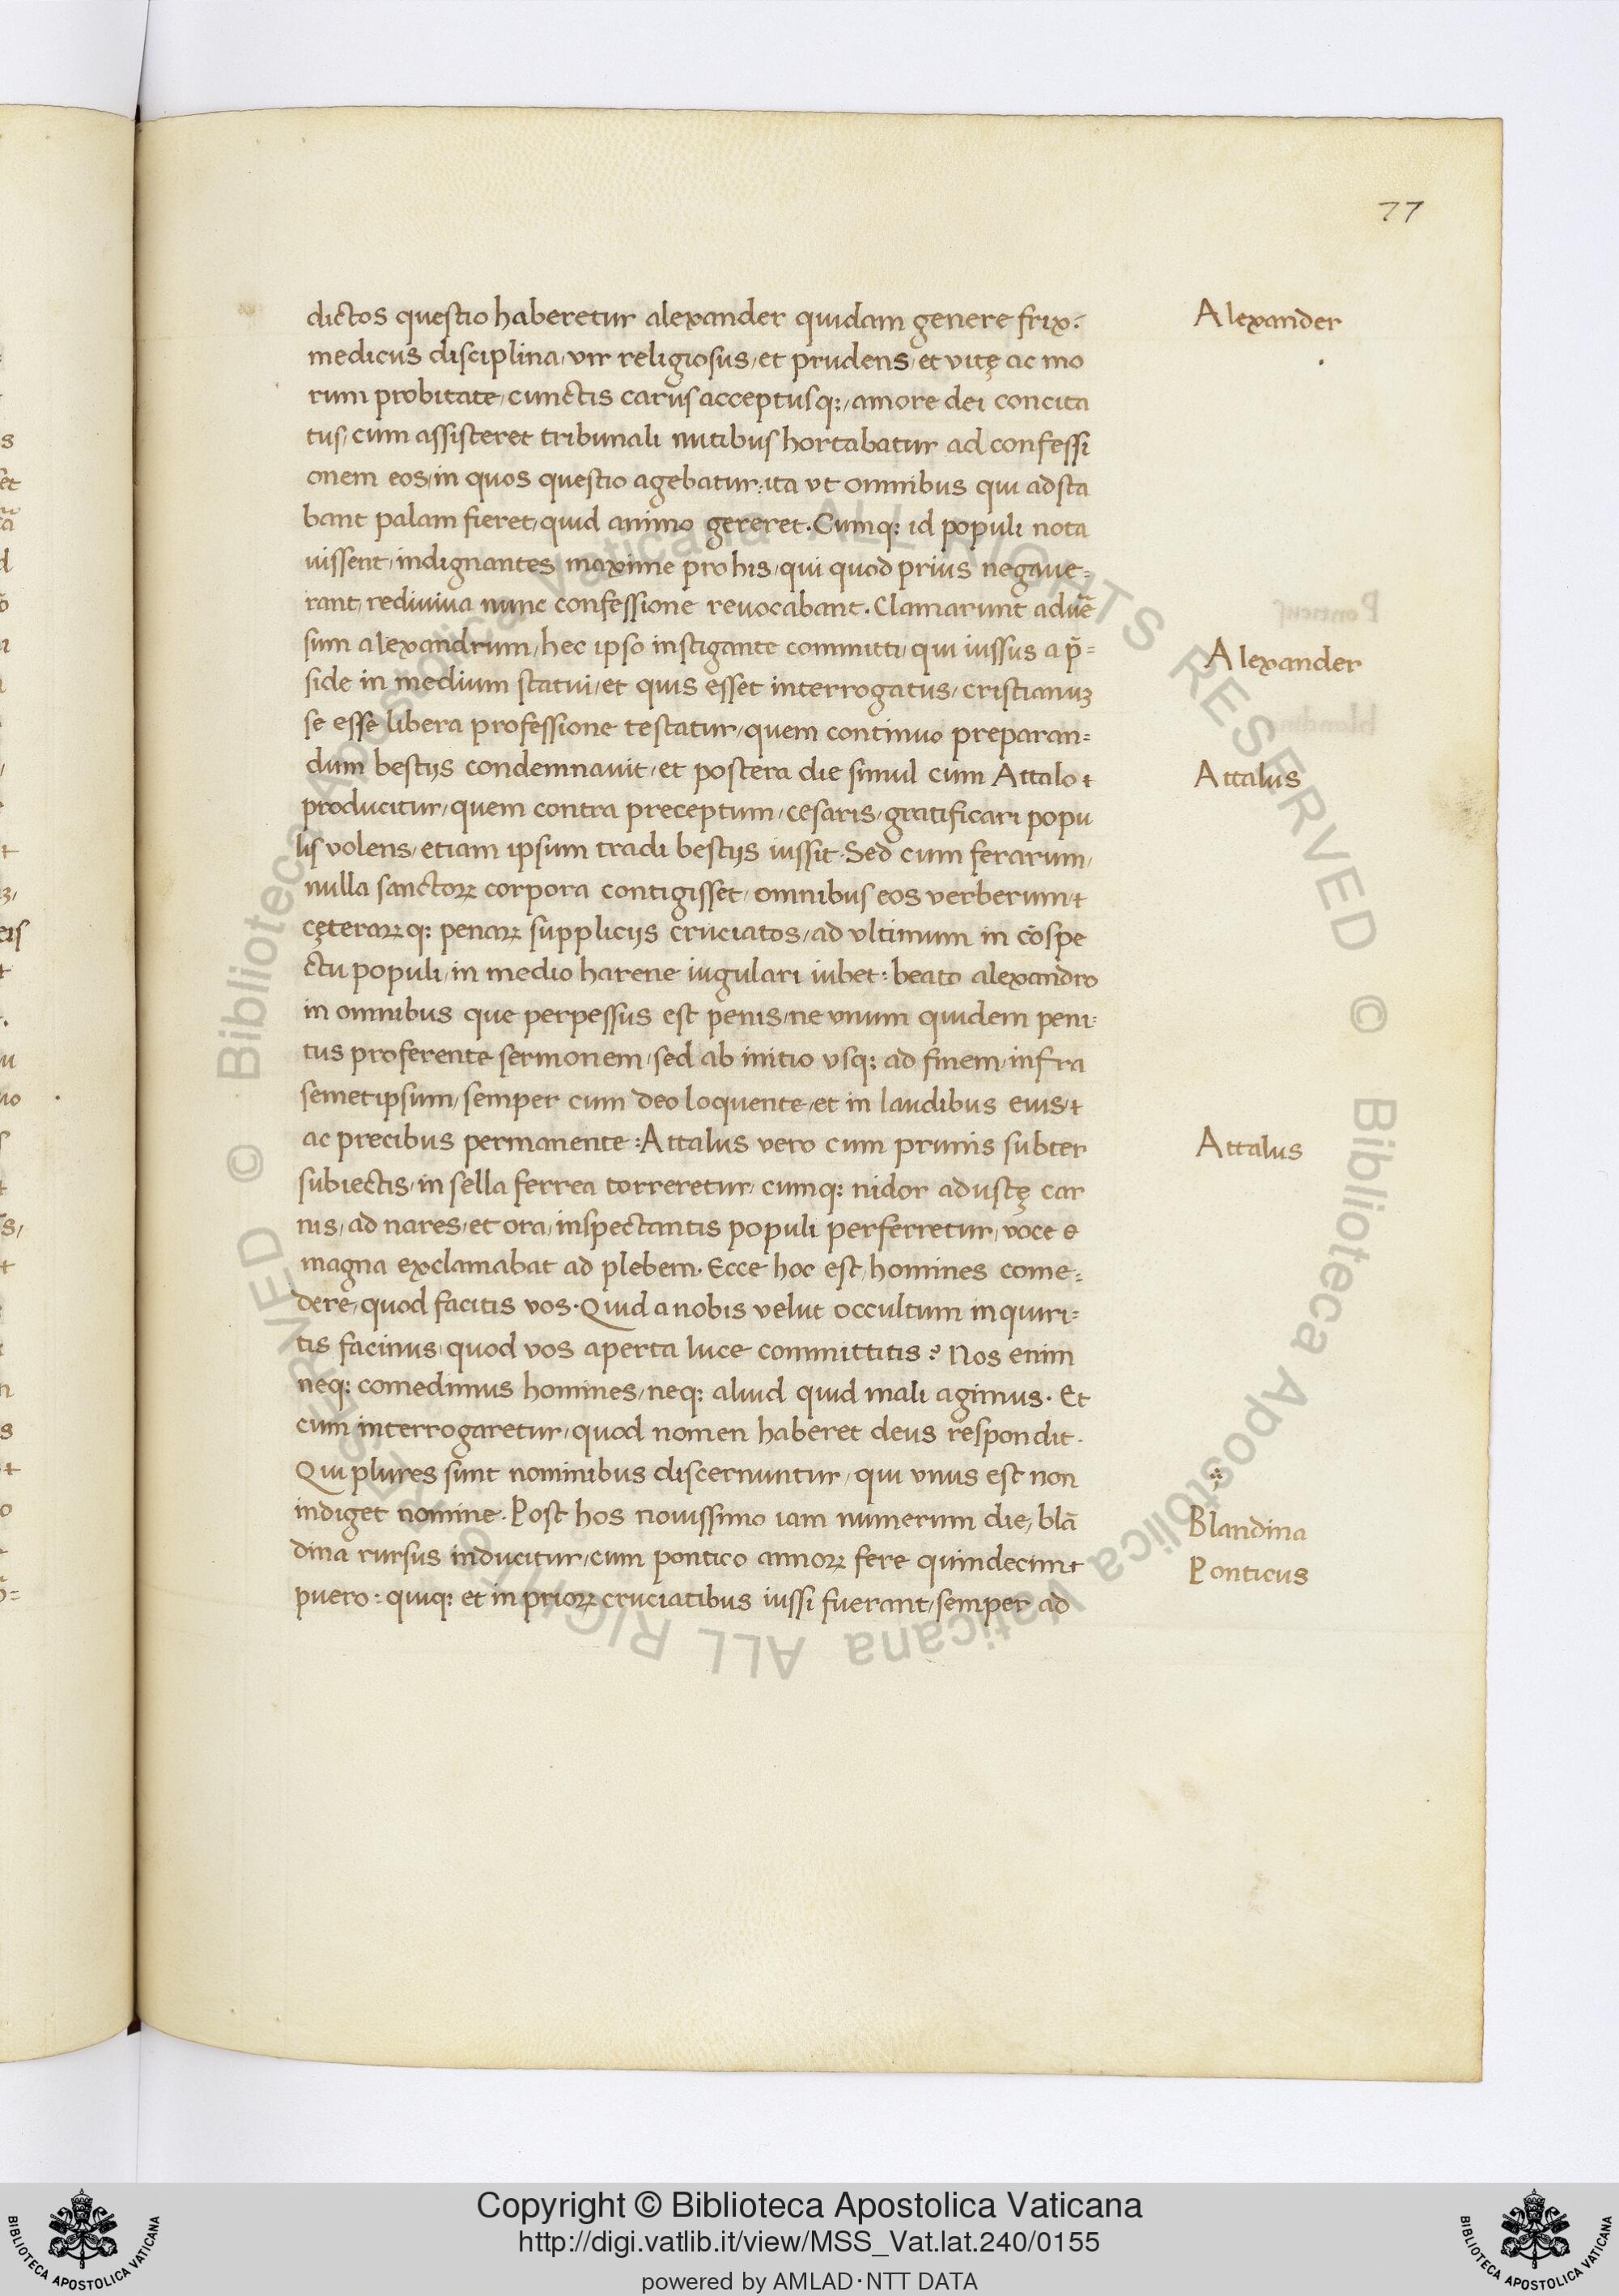 77
dictos questio haberetur alexander quidam genere frix:
Alexander
medicus disciplina, vir religiosus, et prudens, et vitę ac mo
rum probitate, cunctis carus acceptusq;, amore dei concita
tus, cum assisteret tribunali nutibus hortabatur ad confessi
onem eos, in quos questio agebatur: ita vt omnibus qui adsta
bant palam fieret, quid animo gereret. Cumq; id populi nota
uissent, indignantes maxime pro his, qui quod prius negaue-
rant, rediuiua nunc confessione reuocabant. Clamarunt aduē
sum alexandrum, hec ipso instigante committi, qui iussus a p̄-
Alexander
side in medium statui, et quis esset interrogatus, cristianuꝫ
se esse libera professione testatur, quem continuo preparan-
dum bestijs condemnauit, et postera die simul cum Attalo
Attalus
producitur, quem contra preceptum, cesaris, gratificari popu
lis volens, etiam ipsum tradi bestijs iussit. Sed cum ferarum,
nulla sanctoꝝ corpora contigisset, omnibus eos verberum
cęteraꝝq; penaꝝ supplicijs cruciatos, ad vltimum in cōspe
ctu populi, in medio harene iugulari iubet: beato alexandro
in omnibus que perpessus est penis, ne vnum quidem peni-
tus proferente sermonem, sed ab initio vsq; ad finem, infra
semetipsum, semper cum deo loquente, et in laudibus eius
ac precibus permanente: Attalus vero cum prunis subter
Attalus
subiectis, in sella ferrea torreretur, cumq; nidor adustę car
nis, ad nares, et ora, inspectantis populi perferretur, voce
magna exclamabat ad plebem. Ecce hoc est, homines come-
dere, quod facitis vos. Quid a nobis velut occultum inquiri-
tis facinus, quod vos aperta luce committitis? Nos enim
neq; comedimus homines, neq; aliud quid mali agimus. Et
cum interrogaretur, quod nomen haberet deus respondit.
Qui plures sunt nominibus discernuntur, qui vnus est non
indiget nomine. Post hos nouissimo iam numerum die, blā
Blandina
dina rursus inducitur, cum pontico annoꝝ fere quindecim
Ponticus
puero: quiq; et in prioꝝ cruciatibus iussi fuerant, semper ad
© Biblioteca Apostolica Vaticana ALL RIGHTS RESERVED © Biblioteca Apostolica Vaticana ALL RIGHTS RESERVED
Copyright © Biblioteca Apostolica Vaticana
http://digi.vatlib.it/view/MSS_Vat.lat.240/0155
powered by AMLAD·NTT DATA
BIBLIOTECA APOSTOLICA VATICANA
BIBLIOTECA APOSTOLICA VATICANA